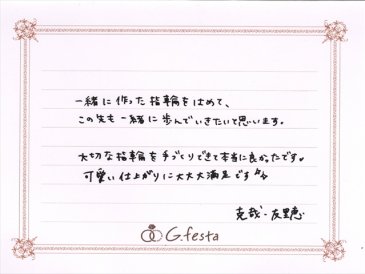 一緒に作った指輪をはめて、
この先も一緒に歩んでいきたいて思います。
大切な指輪を手づくりできて本当に良かったです。
可愛い仕上がりに大大大満足です
克哉・友里恵
G.festa